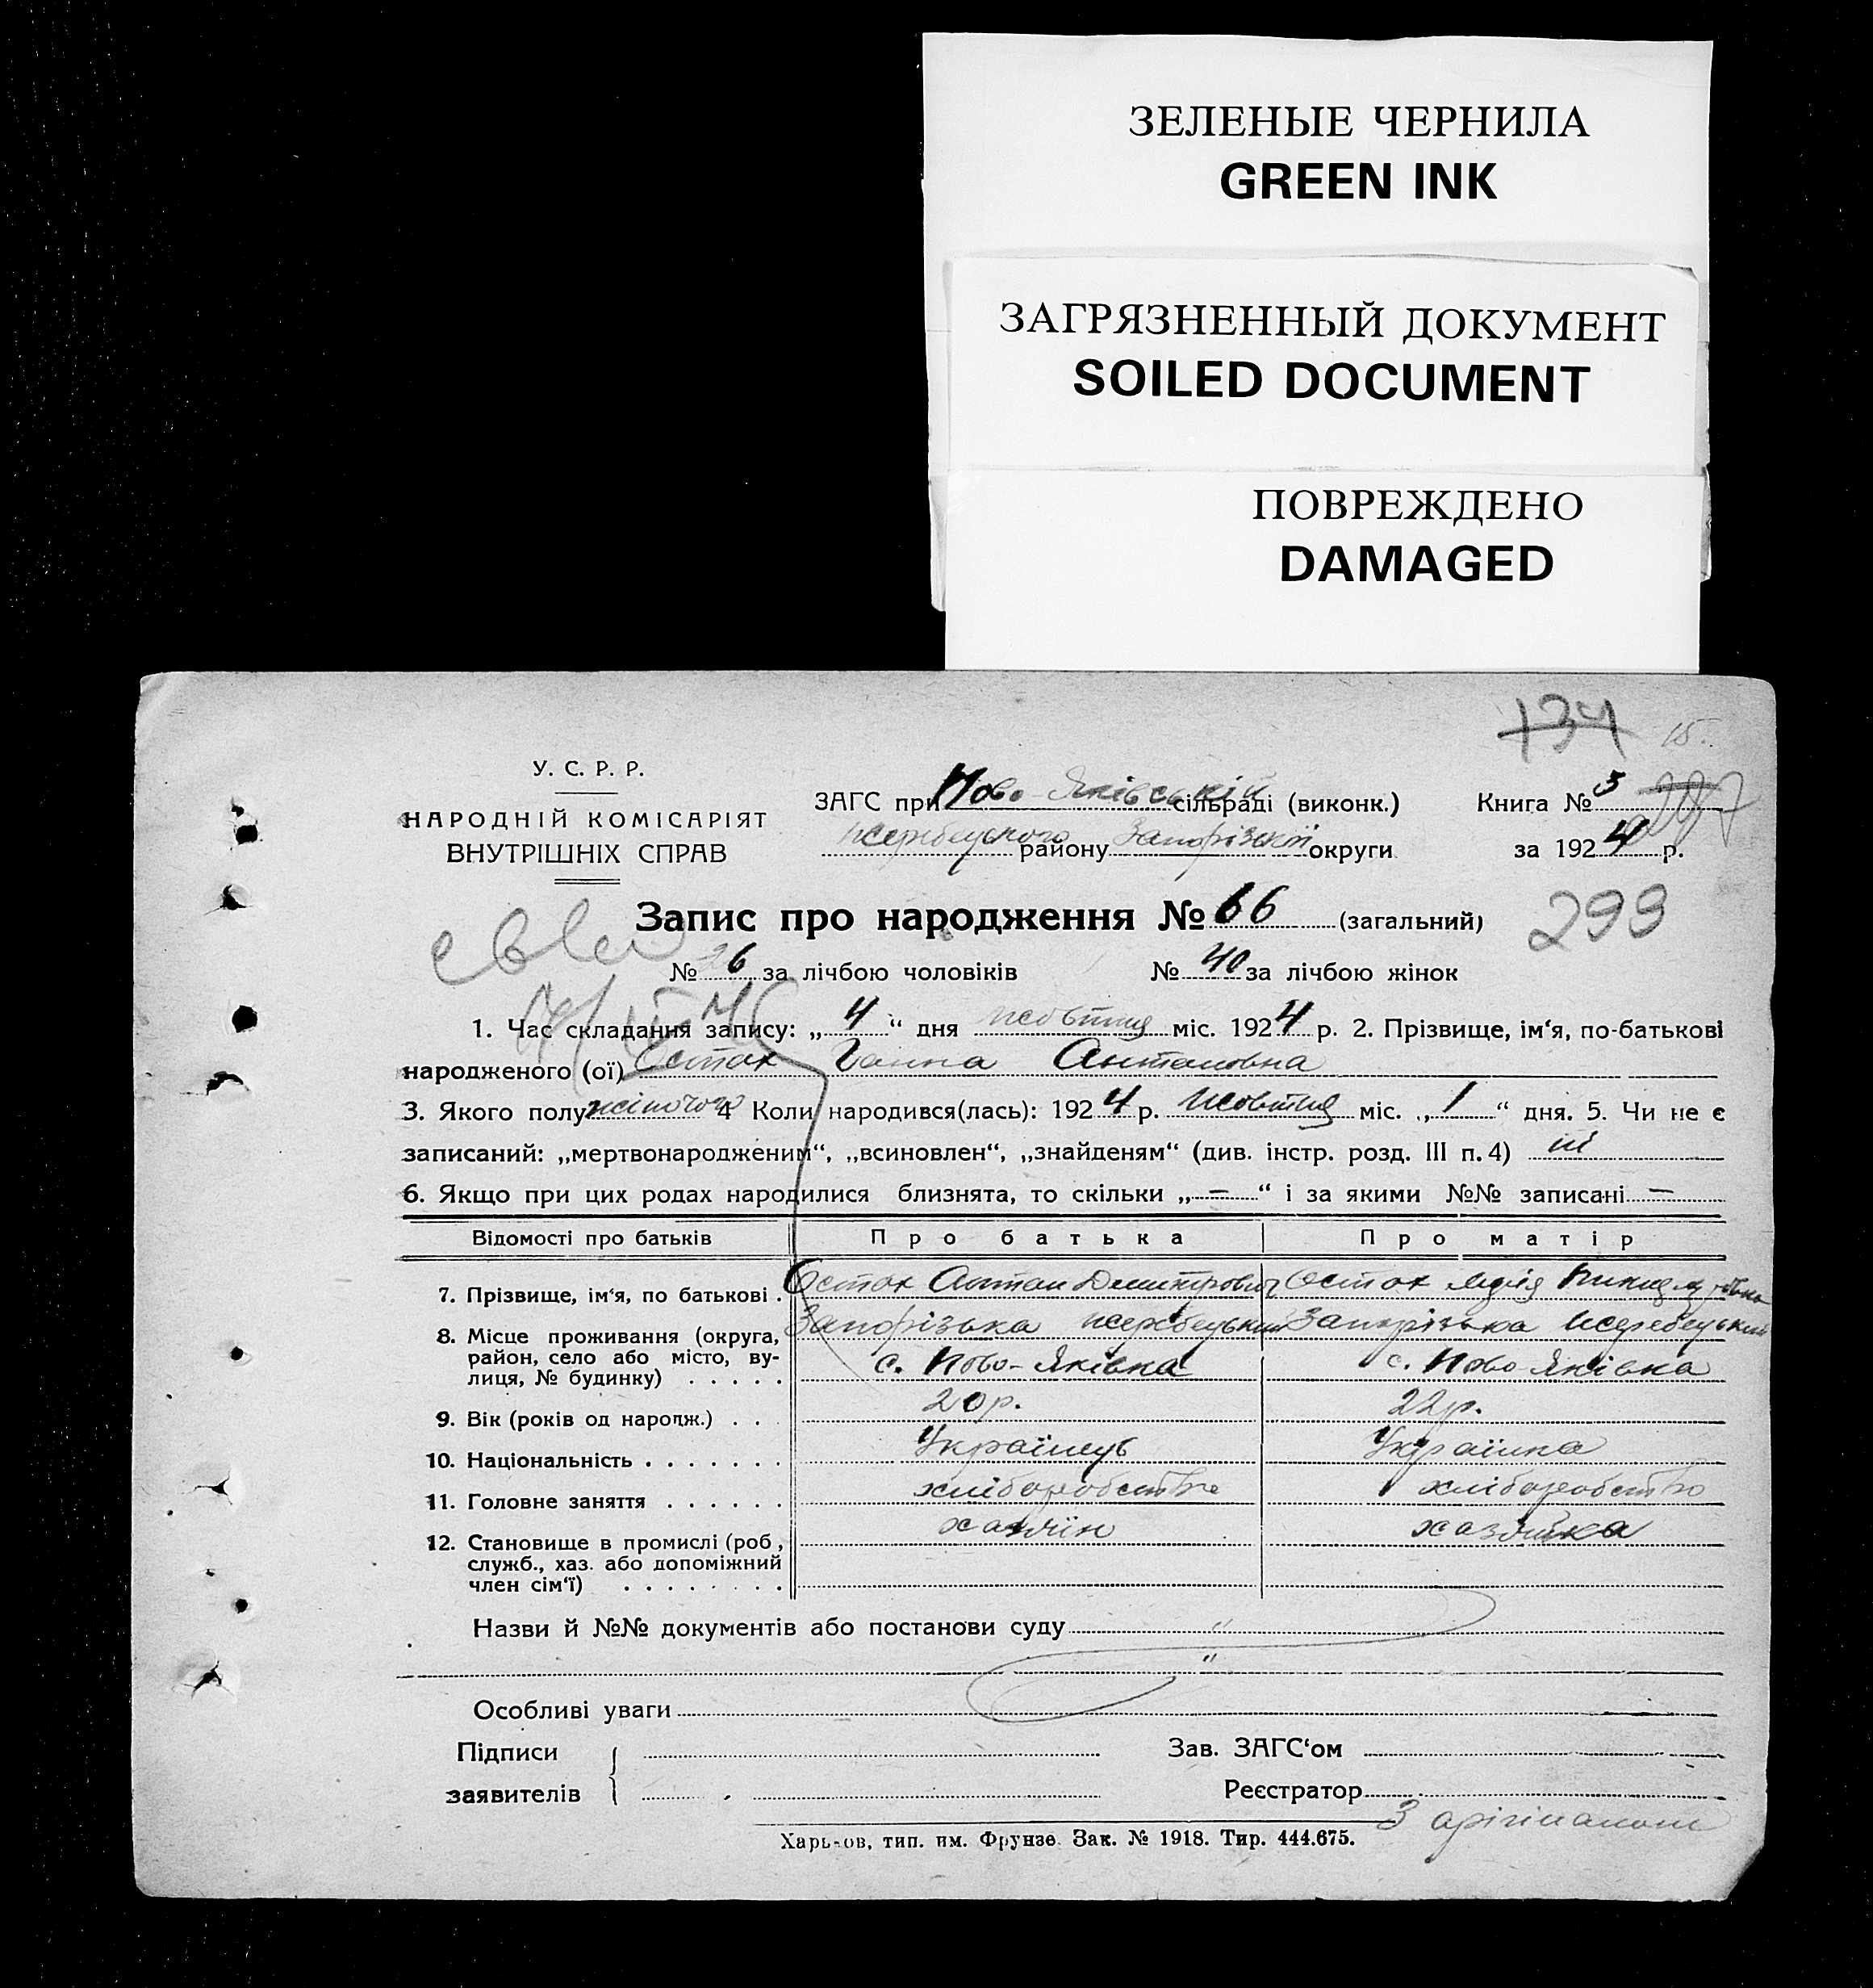 ЗЕЛЕНЫЕ ЧЕРНИЛА
GREEN INK
ЗАГРЯЗНЕННЫЙ ДОКУМЕНТ
SOILED DOCUMENT
ПОВРЕЖДЕНО
DAMAGED
134 15.
У. С. Р. Р.
НАРОДНІЙ КОМІСАРІЯТ
ВНУТРІШНІХ СПРАВ
ЗАГС при Ново-Яківській сільраді (виконк.) Книга № 3
району Запорізькії округи за 1924 р.
Запис про народження № 66 (загальний)
299
№ 26 за лічбою чоловіків № 40 за лічбою жінок
1. Час складання запису: „4“ дня жовтця міс. 1924 р. 2. Прізвище, ім‘я, по-батькові
народженого (ої) Остах Ганна Антоновна
3. Якого полу жіночого 4 Коли народився(лась): 1924 р. жовтця міс. „1“ дня. 5. Чи не є
записаний: „мертвонародженим“, „всиновлен“, „знайденям“ (див. інстр. розд. III п. 4) ні
6. Якщо при цих родах народилися близнята, то скільки „—“ і за якими №№ записані —
Відомості про батьків Про батька Про матір
7. Прізвище, ім‘я, по батькові . Остах Антон Дмитрович Остах
8. Місце проживання (округа, район, село або місто, вулиця, № будинку) . . . . . Запорізька Жеребецький Запорізька Жеребецький
с. Ново-Яківка с. Ново-Яківка
9. Вік (років од народж.) . . 20 р. 22 р.
10. Національність . . . . . . . Українець Українка
11. Головне заняття . . . . . . хліборобство хліборобство
12. Становище в промислі (роб., служб., хаз. або допоміжний член сім‘ї) . . . . . . . . хазяїн хазяйка
Назви й №№ документів або постанови суду "
"
Особливі уваги
Підписи заявителів
Зав. ЗАГС‘ом
Реєстратор
З арігіналом
Харьков, тип. им. Фрунзе. Зак. № 1918. Тир. 444.675.